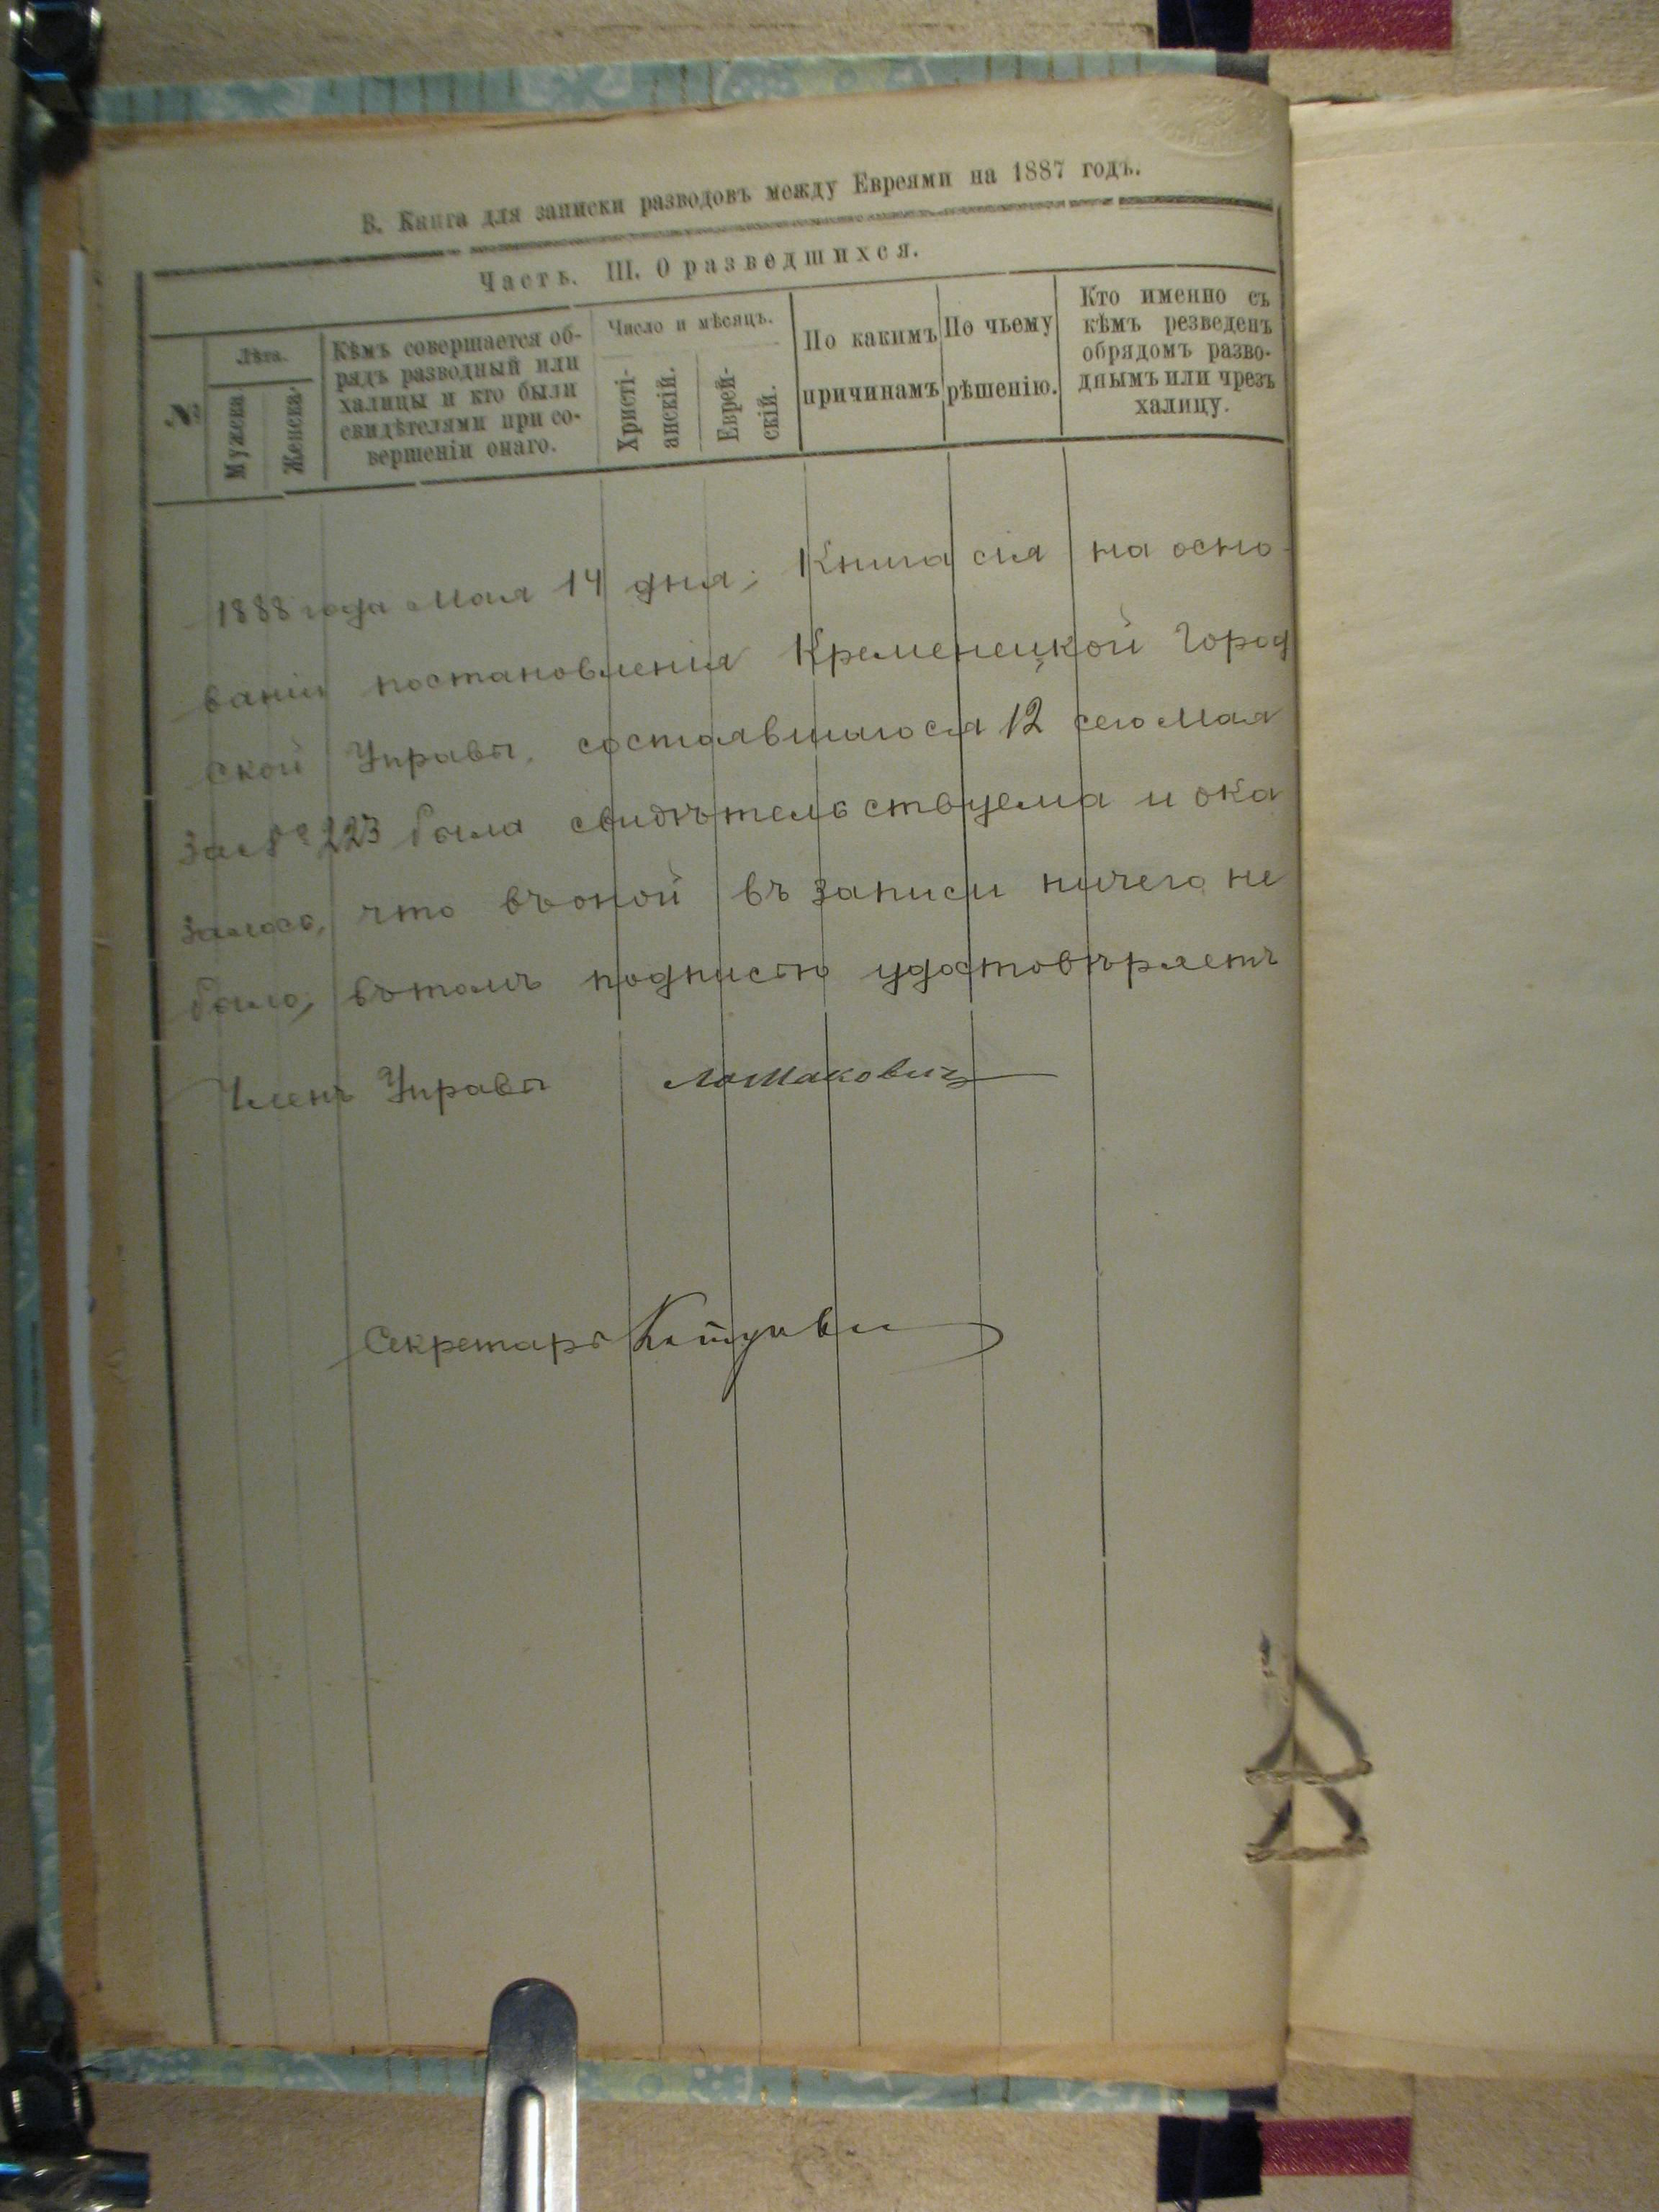 В. Книга для записки разводовъ между Евреями на 1887 годъ.
Часть. III. О разведшихся.
№
Лѣта.
Мужска
Женска
Кѣмъ совершается об-
рядъ разводный или
халицы и кто были
свидѣтелями при со-
вершеніи онаго.
Число и мѣсяцъ.
Христі-
анскій.
Еврей-
скій.
По какимъ
причинамъ
По чьему
рѣшенію.
Кто именно съ
кѣмъ резведенъ
обрядомъ разво-
днымъ или чрезъ
халицу.
1888 года Мая 14 дня; Книга сія на осно-
ваніи постановленія Кременецкой Город
ской Управы, состоявшагося 12 сего Мая
за № 223 была свидѣтельствуема и ока
залось, что въ оной въ записи ничего не
было, въ томъ подписью удостовѣряетъ
Членъ Управы Ломакович
Секретарь